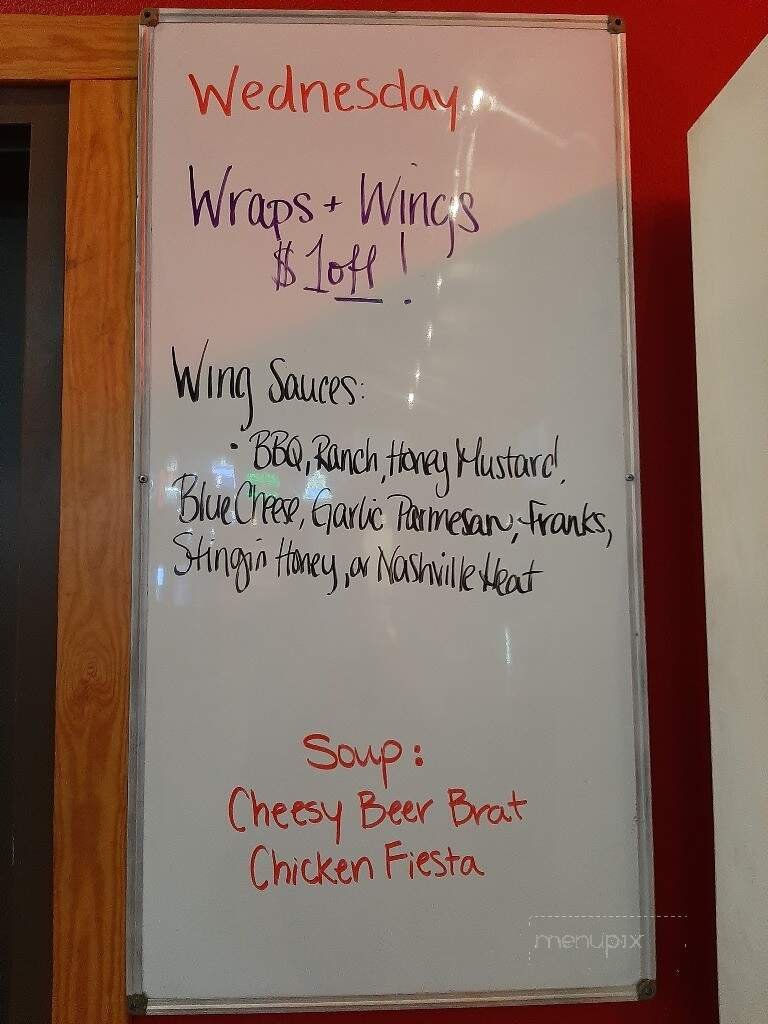 Wednesday
Wraps + Wings
$1 off!
Wing Sauces:
• BBQ, Ranch, Honey Mustard,
Blue Cheese, Garlic Parmesan, Franks,
Stingin Honey, or Nashville Heat
Soup:
Cheesy Beer Brat
Chicken Fiesta
menupix